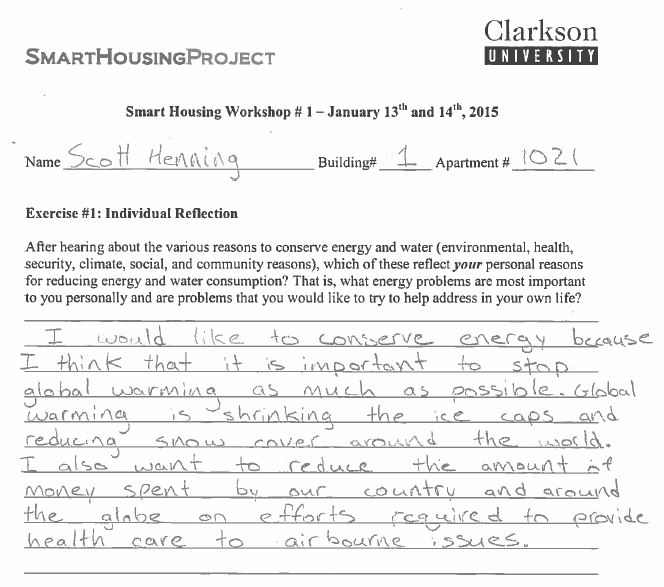 Clarkson
UNIVERSITY
SMARTHOUSINGPROJECT
Smart Housing Workshop # 1 – January 13th and 14th, 2015
Name Scott Henning Building# 1 Apartment # 1021
Exercise #1: Individual Reflection
After hearing about the various reasons to conserve energy and water (environmental, health,
security, climate, social, and community reasons), which of these reflect your personal reasons
for reducing energy and water consumption? That is, what energy problems are most important
to you personally and are problems that you would like to try to help address in your own life?
I would like to conserve energy because
I think that it is important to stop
global warming as much as possible. Global
warming is shrinking the ice caps and
reducing snow cover around the world.
I also want to reduce the amount of
money spent by our country and around
the globe on efforts required to provide
health care to air bourne issues.